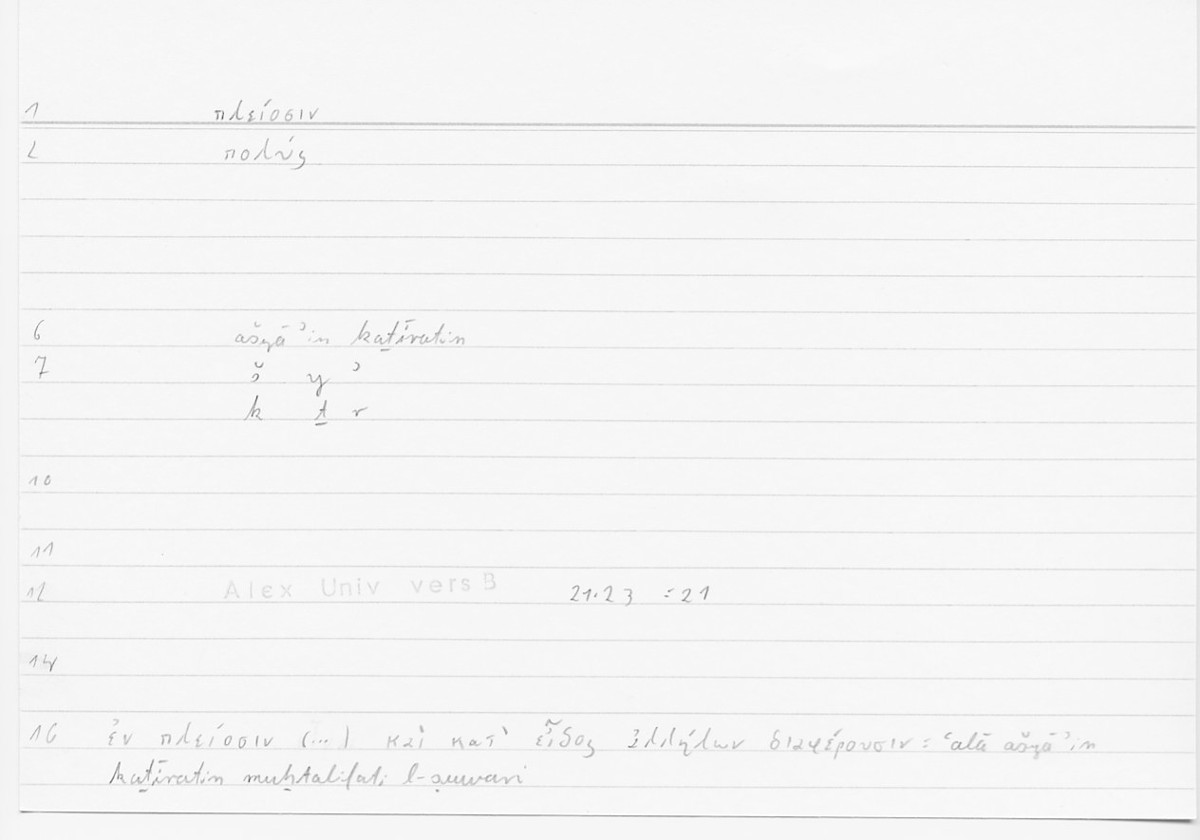 1 πλείοσιν
2 πολύς
6 ašyāʾin kaṯīratin
7 š y ʾ
k ṯ r
10
11
12 Alex Univ vers B 21.23 = 21
14
16 ἐν πλείοσιν (...) καὶ κατ' εἶδος ἀλλήλων διαφέρουσιν = ʿalā ašyāʾin
kaṯīratin muḫtalifati l-ṣuwari